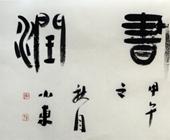 書
潤
甲午
之
秋月
小東